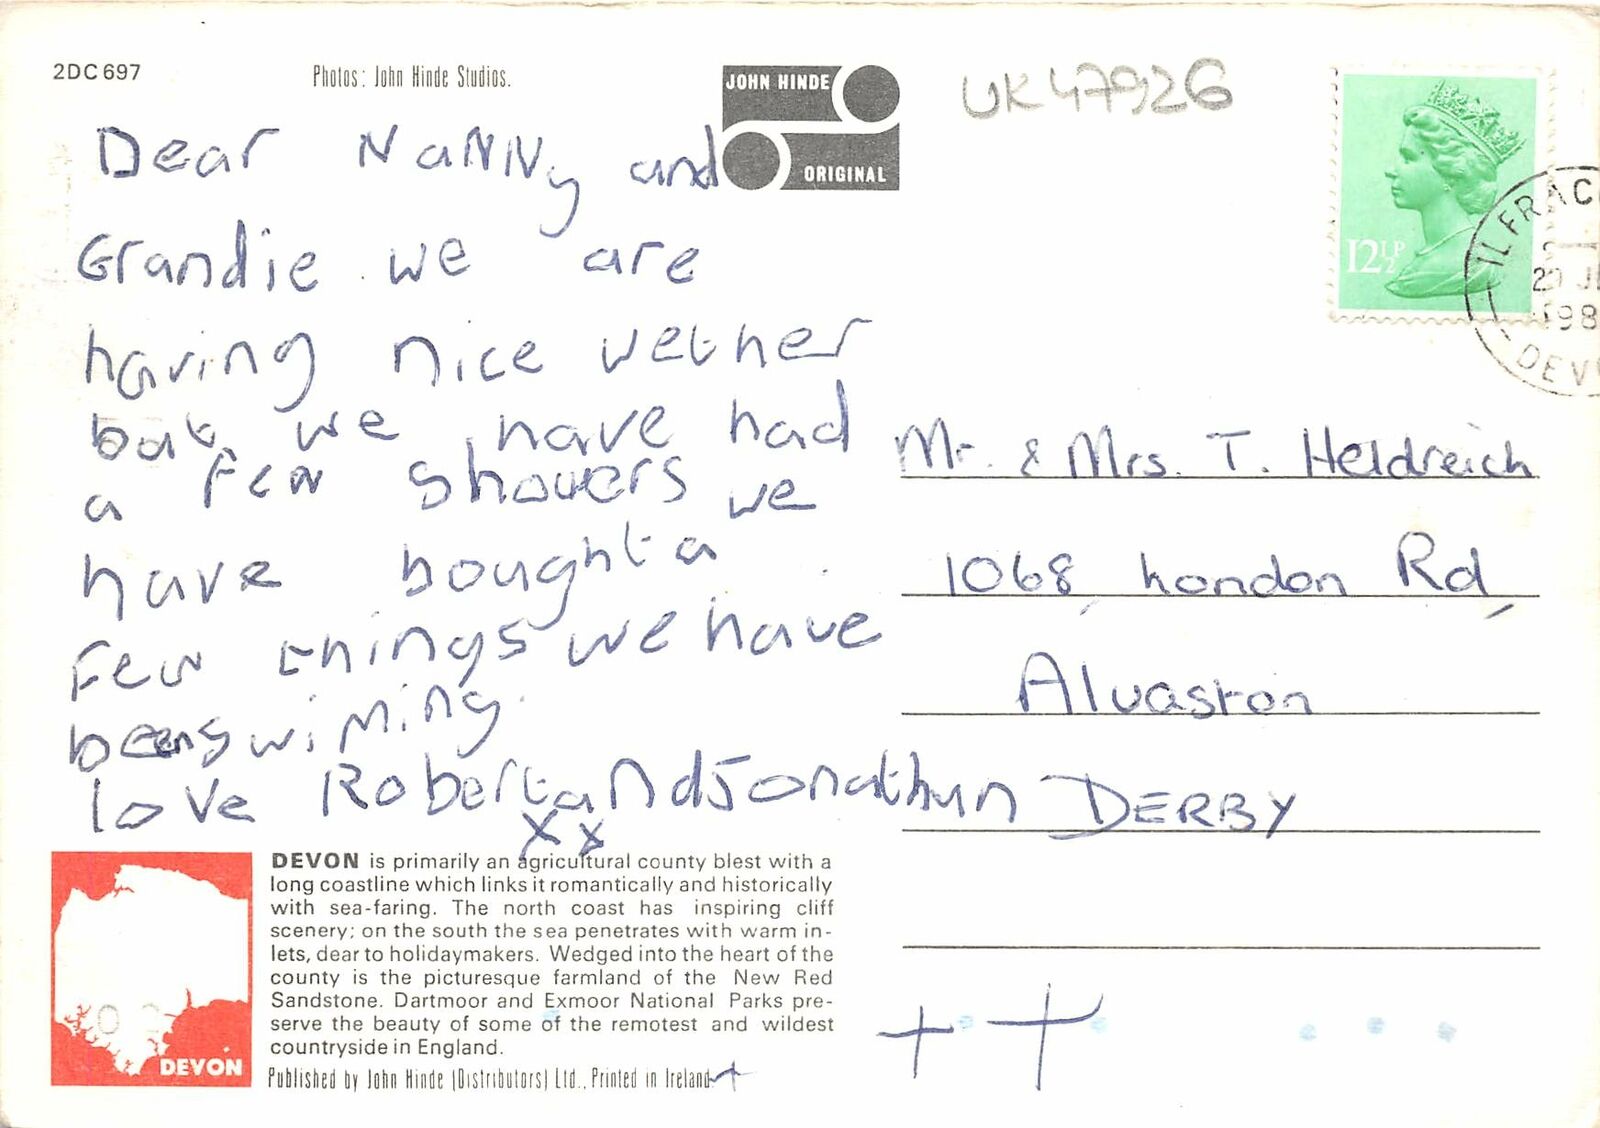 2DC697
Photos: John Hinde Studios.
JOHN HINDE
ORIGINAL
UK47926
12½P
ILFRAC
198
DEV
Dear NaNNy and
Grandie we are
having nice wether
but we have had
a few showers we
have bought a
few things we have
been swiming.
love Robert and Jonathun
x x
Mr. & Mrs. T. Heldreich
1068, London Rd,
Alvaston
DERBY
DEVON is primarily an agricultural county blest with a
long coastline which links it romantically and historically
with sea-faring. The north coast has inspiring cliff
scenery; on the south the sea penetrates with warm in-
lets, dear to holidaymakers. Wedged into the heart of the
county is the picturesque farmland of the New Red
Sandstone. Dartmoor and Exmoor National Parks pre-
serve the beauty of some of the remotest and wildest
countryside in England.
DEVON
Published by John Hinde (Distributors) Ltd., Printed in Ireland.